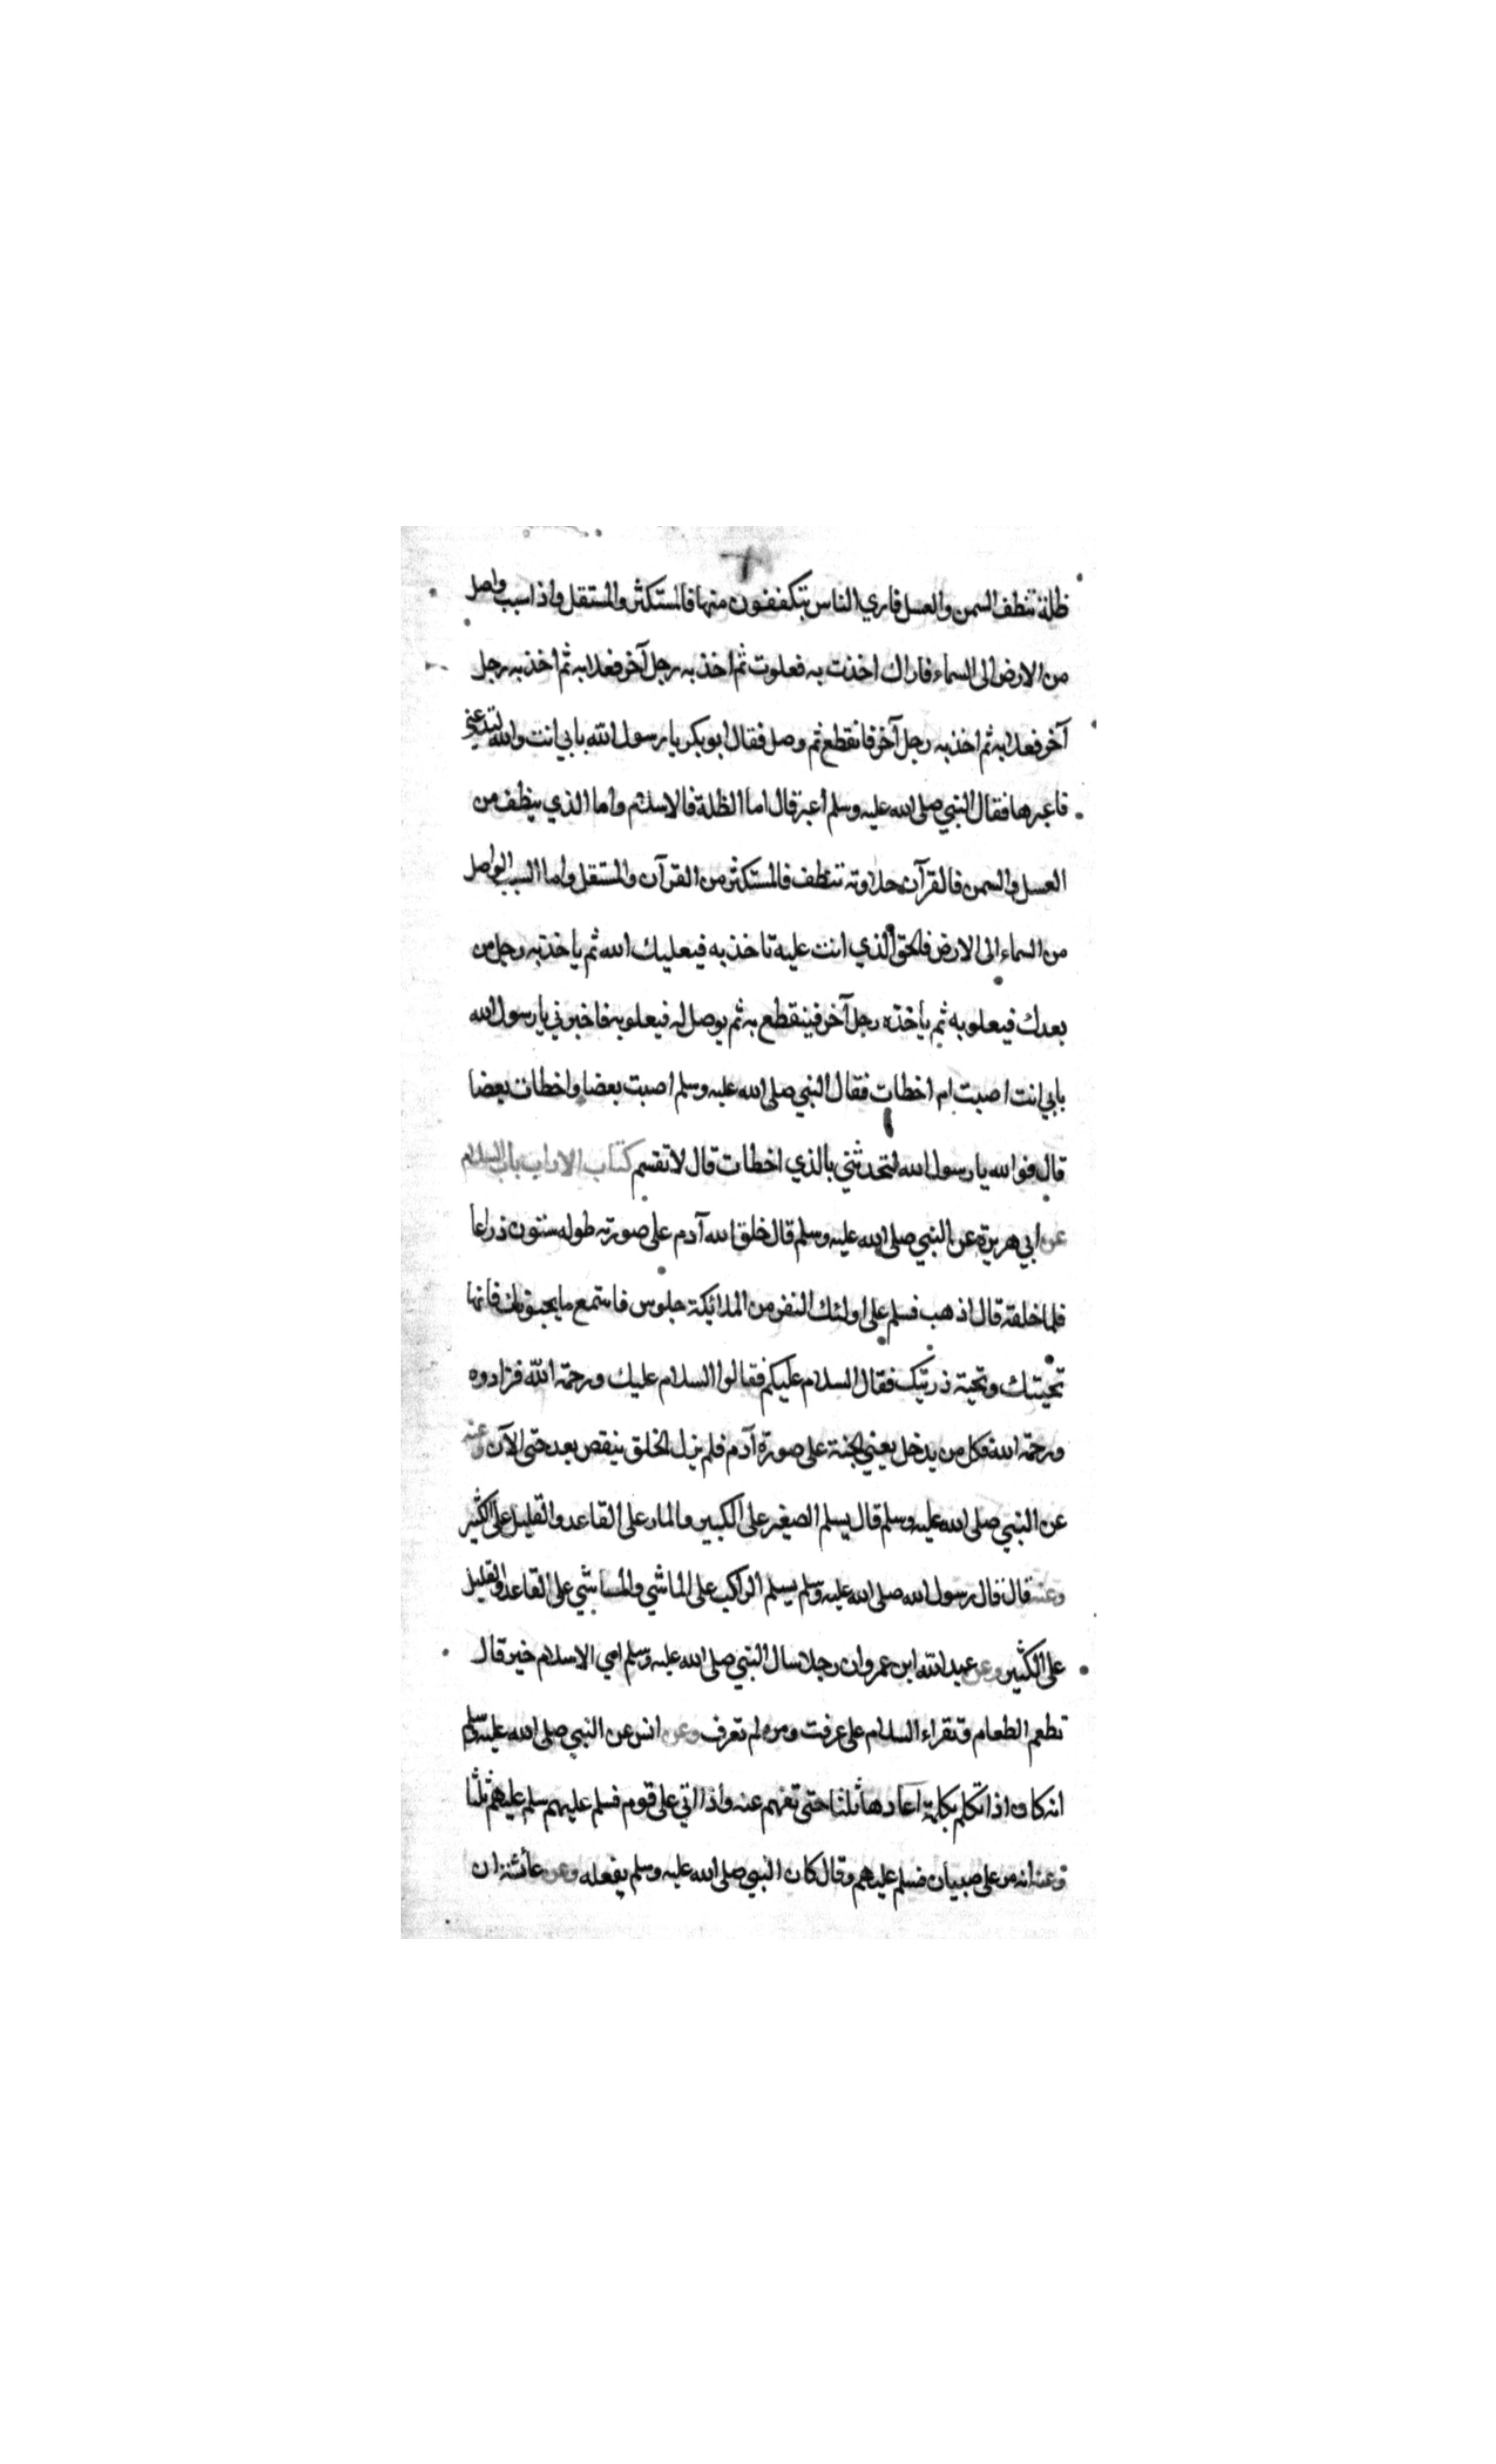 ظلة تنطف السمن والعسل فاري الناس يتكففون منها فالمستكثر والمستقل واذا سبب واصل
من الارض الى السماء فاراك اخذت به فعلوت ثم اخذ به رجل آخر فعلا به ثم اخذ به رجل
آخر فعلا به ثم اخذ به رجل آخر فانقطع ثم وصل فقال ابو بكر يا رسول الله بابي انت والله لتدعني
فاعبرها فقال النبي صلى الله عليه وسلم اعبر قال اما الظلة فالاسلام واما الذي ينطف من
العسل والسمن فالقرآن حلاوته تنطف فالمستكثر من القرآن والمستقل واما السبب الواصل
من السماء الى الارض فالحق الذي انت عليه تاخذ به فيعليك الله ثم ياخذ به رجل من
بعدك فيعلو به ثم ياخذه رجل آخر فينقطع به ثم يوصل له فيعلو به فاخبرني يا رسول الله
بابي انت اصبت ام اخطات فقال النبي صلى الله عليه وسلم اصبت بعضا واخطات بعضا
قال فوالله يا رسول الله لتحدثني بالذي اخطات قال لا تقسم كتاب الاداب باب السلام
عن ابي هريرة عن النبي صلى الله عليه وسلم قال خلق الله آدم على صورته طوله ستون ذراعا
فلما خلقه قال اذهب فسلم على اولئك النفر من الملائكة جلوس فاستمع ما يحيونك فانها
تحيتك وتحية ذريتك فقال السلام عليكم فقالوا السلام عليك ورحمة الله فزادوه
ورحمة الله فكل من يدخل يعني الجنة على صورة آدم فلم يزل الخلق ينقص بعد حتى الآن وعنه
عن النبي صلى الله عليه وسلم قال يسلم الصغير على الكبير والمار على القاعد والقليل على الكثير
وعنه قال قال رسول الله صلى الله عليه وسلم يسلم الراكب على الماشي والماشي على القاعد والقليل
على الكثير وعن عبد الله ابن عمرو ان رجلا سال النبي صلى الله عليه وسلم اي الاسلام خير قال
تطعم الطعام وتقراء السلام على عرفت ومن لم تعرف وعن انس عن النبي صلى الله عليه وسلم
انه كان اذا تكلم بكلمة اعادها ثلثا حتى تفهم عنه واذا اتي على قوم فسلم عليهم سلم عليهم ثلثا
وعنه انه مر على صبيان فسلم عليهم وقال كان النبي صلى الله عليه وسلم يفعله وعن عائشة ان